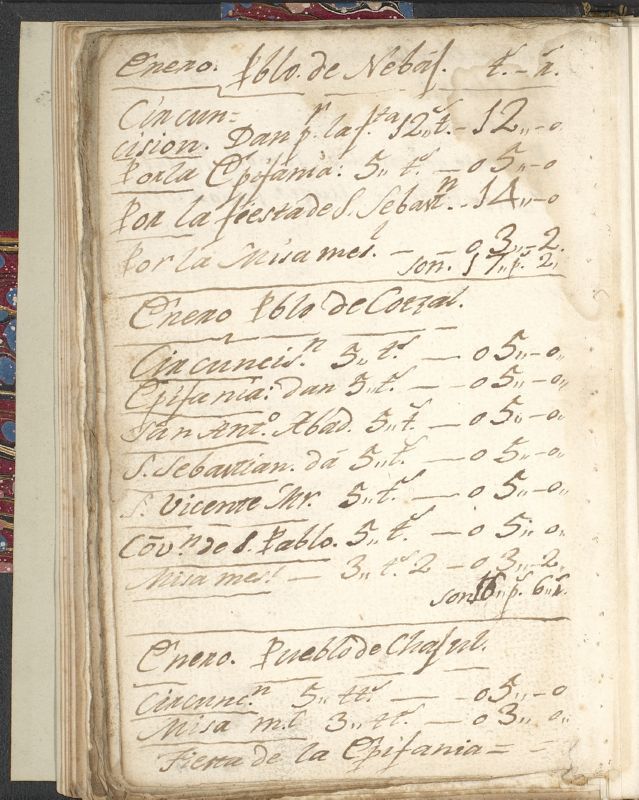 Enero. Pblo. de Nebaj. ts.-rs.
Circun=
cision. Dan pr. la fta. 12,,ts.- 12,,-0
Por la Epifania. 5,, ts. — 05,,-0
Por la fiesta de S. Sebastn.- 14,,-0
Por la Misa mesl. — — 03,,-2.
son. 17,,ps. 2,,
Enero Pblo. de Cotzal.
Circuncisn. 5,, ts. — 05,,-0,,
Epifania: dan 5,,ts. — -05,,-0,,
San Anto. Abad. 5,,ts. — 05,,-0,,
S. Sebastian. dá 5,,ts. — 05,,-0,,
S. Vicente Mr. 5,,ts. — 05,,-0,,
Cõvn. de S. Pablo. 5,,ts. — 05,,-0,,
Misa mesl. — 3,,ts. 2 - 03,,-2,,
son 16,,ps. 6,,rs.
Enero. Pueblo de Chajul.
Circuncn. 5,, tts. — -05,,-0
Misa ml. 3,, tts. — 03,, 0,,
Fiesta de la Epifania = - =